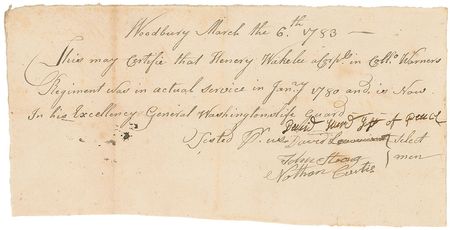 Woodbury March the 6.th 1783 —
This may Certifie that Henery Wakelee a Corpl. in Coll.o Warners
Regiment was in actual Service in Jan.y 1780 and is Now
In his Excellency General Washingtons life Guard
Tested Pr. us David Judson of Peace
David Select
John Strong men
Nathan Curtis